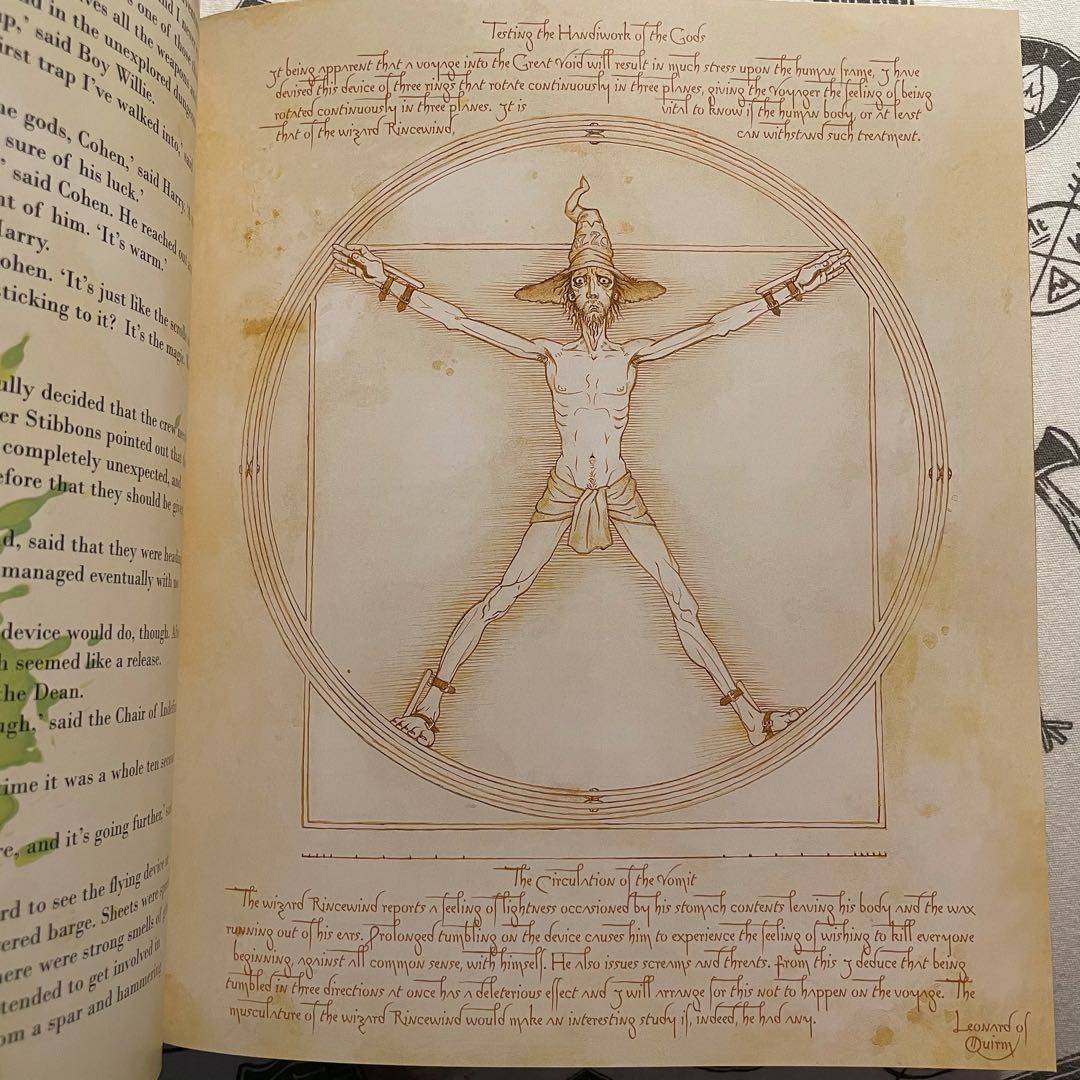 and I
and in the unexplored
up,' said Boy Willie.
first trap I've walked into,' said
the gods, Cohen,' said Harry.
sure of his luck.'
said Cohen. He reached out
of him. 'It's warm.'
Harry.
'It's just like the
sticking to it? It's the
decided that the crew
Stibbons pointed out that
completely unexpected, and
that they should be
said that they were
managed eventually with no
device would do, though.
seemed like a release.
the Dean.
said the Chair of
time it was a whole ten
and it's going further,'
to see the flying device
barge. Sheets were
there were strong smells of
to get involved in
from a spar and hammering
Testing the Handiwork of the Gods
It being apparent that a voyage into the Great Void will result in much stress upon the human frame, I have
devised this device of three rings that rotate continuously in three planes, giving the Voyager the feeling of being
rotated continuously in three planes. It is vital to know if the human body, or at least
that of the wizard Rincewind, can withstand such treatment.
The Circulation of the Vomit
The wizard Rincewind reports a feeling of lightness occasioned by his stomach contents leaving his body and the wax
running out of his ears. Prolonged tumbling on the device causes him to experience the feeling of wishing to kill everyone
beginning, against all common sense, with himself. He also issues screams and threats. From this I deduce that being
tumbled in three directions at once has a deleterious effect and I will arrange for this not to happen on the voyage. The
musculature of the wizard Rincewind would make an interesting study if, indeed, he had any.
Leonard of
Quirm